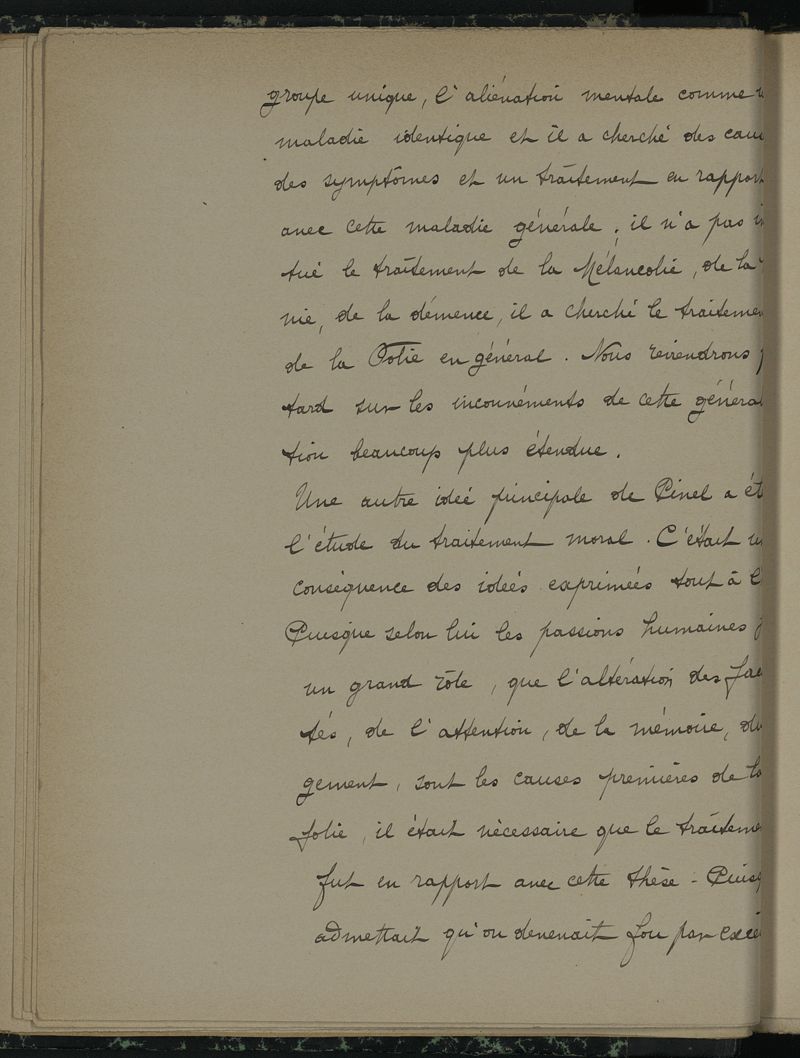 groupe unique, l'aliénation mentale comme
maladie identique et il a cherché des cau
des symptômes et un traitement en rapport
avec cette maladie générale ; il n'a pas in
tué le traitement de la Mélancolie, de la
nie, de la démence, il a cherché le traitemen
de la Folie en général. Nous reviendrons
tard sur les inconvénients de cette général
tion beaucoup plus étendue.
Une autre idée principale de Pinel a ét
l'étude du traitement moral. C'était un
conséquence des idées exprimées tout à l'
Puisque selon lui les passions humaines
un grand rôle, que l'altération des fac
tés, de l'attention, de la mémoire, du
gement, sont les causes premières de la
folie, il était nécessaire que le traiteme
fut en rapport avec cette thèse - Puisq
admettait qu'on devenait fou par excè